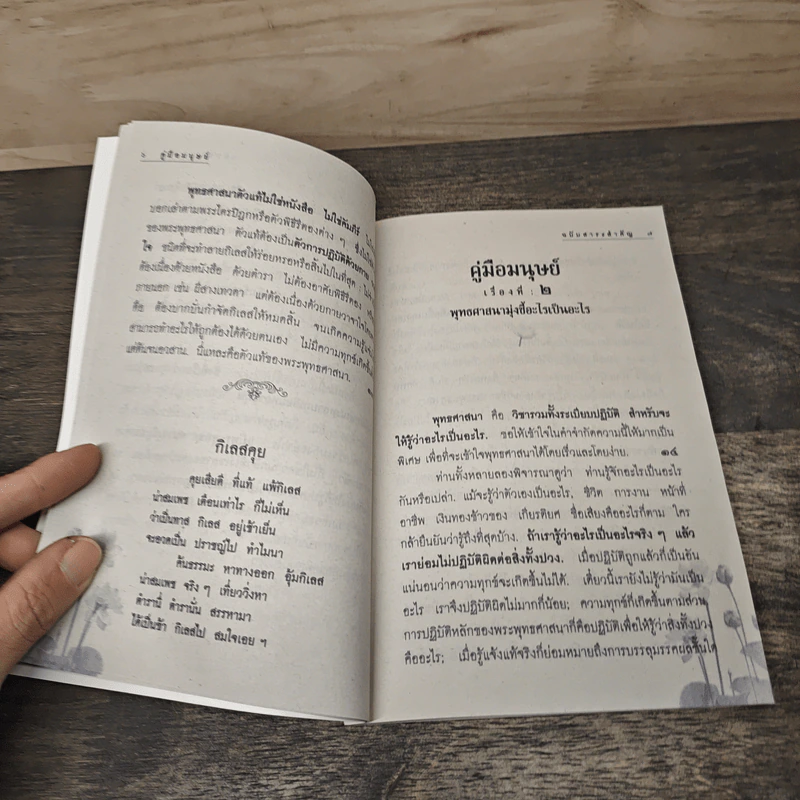 ๖ คู่มือมนุษย์
พุทธศาสนาตัวแท้ไม่ใช่หนังสือ ไม่ใช่คัมภีร์
บอกเล่าตามพระไตรปิฎกหรือตัวพิธีรีตองต่าง ๆ
ของพระพุทธศาสนา ตัวแท้ต้องเป็นตัวการปฏิบัติด้วยกาย
ใจ ชนิดที่จะทำลายกิเลสให้ร่อยหรอหรือสิ้นไปในที่สุด
ต้องเนื่องด้วยหนังสือ ด้วยตำรา ไม่ต้องอาศัยพิธีรีตอง
ภายนอก เช่น ผีสางเทวดา แต่ต้องเนื่องด้วยกายวาจาใจ
คือ ต้องบากบั่นกำจัดกิเลสให้หมดสิ้น จนเกิดความรู้
สามารถทำอะไรให้ถูกต้องได้ด้วยตนเอง ไม่มีความทุกข์เกิดขึ้น
แต่ต้นจนอวสาน. นี่แหละคือตัวแท้ของพระพุทธศาสนา.
กิเลสคุย
คุยเสียดิ ที่แท้ แพ้กิเลส
น่าสมเพช เดือนเท่าไร ก็ไม่เห็น
ว่าเป็นทาส กิเลส อยู่เช้าเย็น
จะอวดเป็น ปราชญ์ไป ทำไมนา
ค้นธรรมะ หาทางออก อุ้มกิเลส
น่าสมเพช จริง ๆ เที่ยววิ่งหา
ตำรานี่ ตำรานั่น สรรหามา
ได้เป็นข้า กิเลสไป สมใจเอย ฯ
ฉบับสาระสำคัญ ๗
คู่มือมนุษย์
เรื่องที่ : ๒
พุทธศาสนามุ่งชี้อะไรเป็นอะไร
พุทธศาสนา คือ วิชารวมทั้งระเบียบปฏิบัติ สำหรับจะ
ให้รู้ว่าอะไรเป็นอะไร. ขอให้เข้าใจในคำจำกัดความนี้ให้มากเป็น
พิเศษ เพื่อที่จะเข้าใจพุทธศาสนาได้โดยเร็วและโดยง่าย. ๑๔
ท่านทั้งหลายลองพิจารณาดูว่า ท่านรู้จักอะไรเป็นอะไร
กันหรือเปล่า. แม้จะรู้ว่าตัวเองเป็นอะไร, ชีวิต การงาน หน้าที่
อาชีพ เงินทองข้าวของ เกียรติยศ ชื่อเสียงคืออะไรก็ตาม ใคร
กล้ายืนยันว่ารู้ถึงที่สุดบ้าง. ถ้าเรารู้ว่าอะไรเป็นอะไรจริง ๆ แล้ว
เราย่อมไม่ปฏิบัติผิดต่อสิ่งทั้งปวง. เมื่อปฏิบัติถูกแล้วก็เป็นอัน
แน่นอนว่าความทุกข์จะเกิดขึ้นไม่ได้. เดี๋ยวนี้เรายังไม่รู้ว่ามันเป็น
อะไร เราจึงปฏิบัติผิดไม่มากก็น้อย; ความทุกข์ก็เกิดขึ้นตามส่วน
การปฏิบัติหลักของพระพุทธศาสนาก็คือปฏิบัติเพื่อให้รู้ว่าสิ่งทั้งปวง
คืออะไร; เมื่อรู้แจ้งแท้จริงก็ย่อมหมายถึงการบรรลุมรรคผลชั้นใด